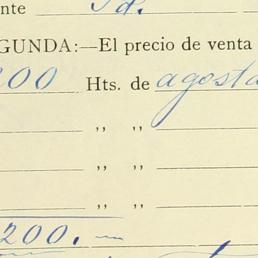 nte Id.
GUNDA:—El precio de venta
200 Hts. de agosta
,, ,,
,, ,,
,, ,,
200.